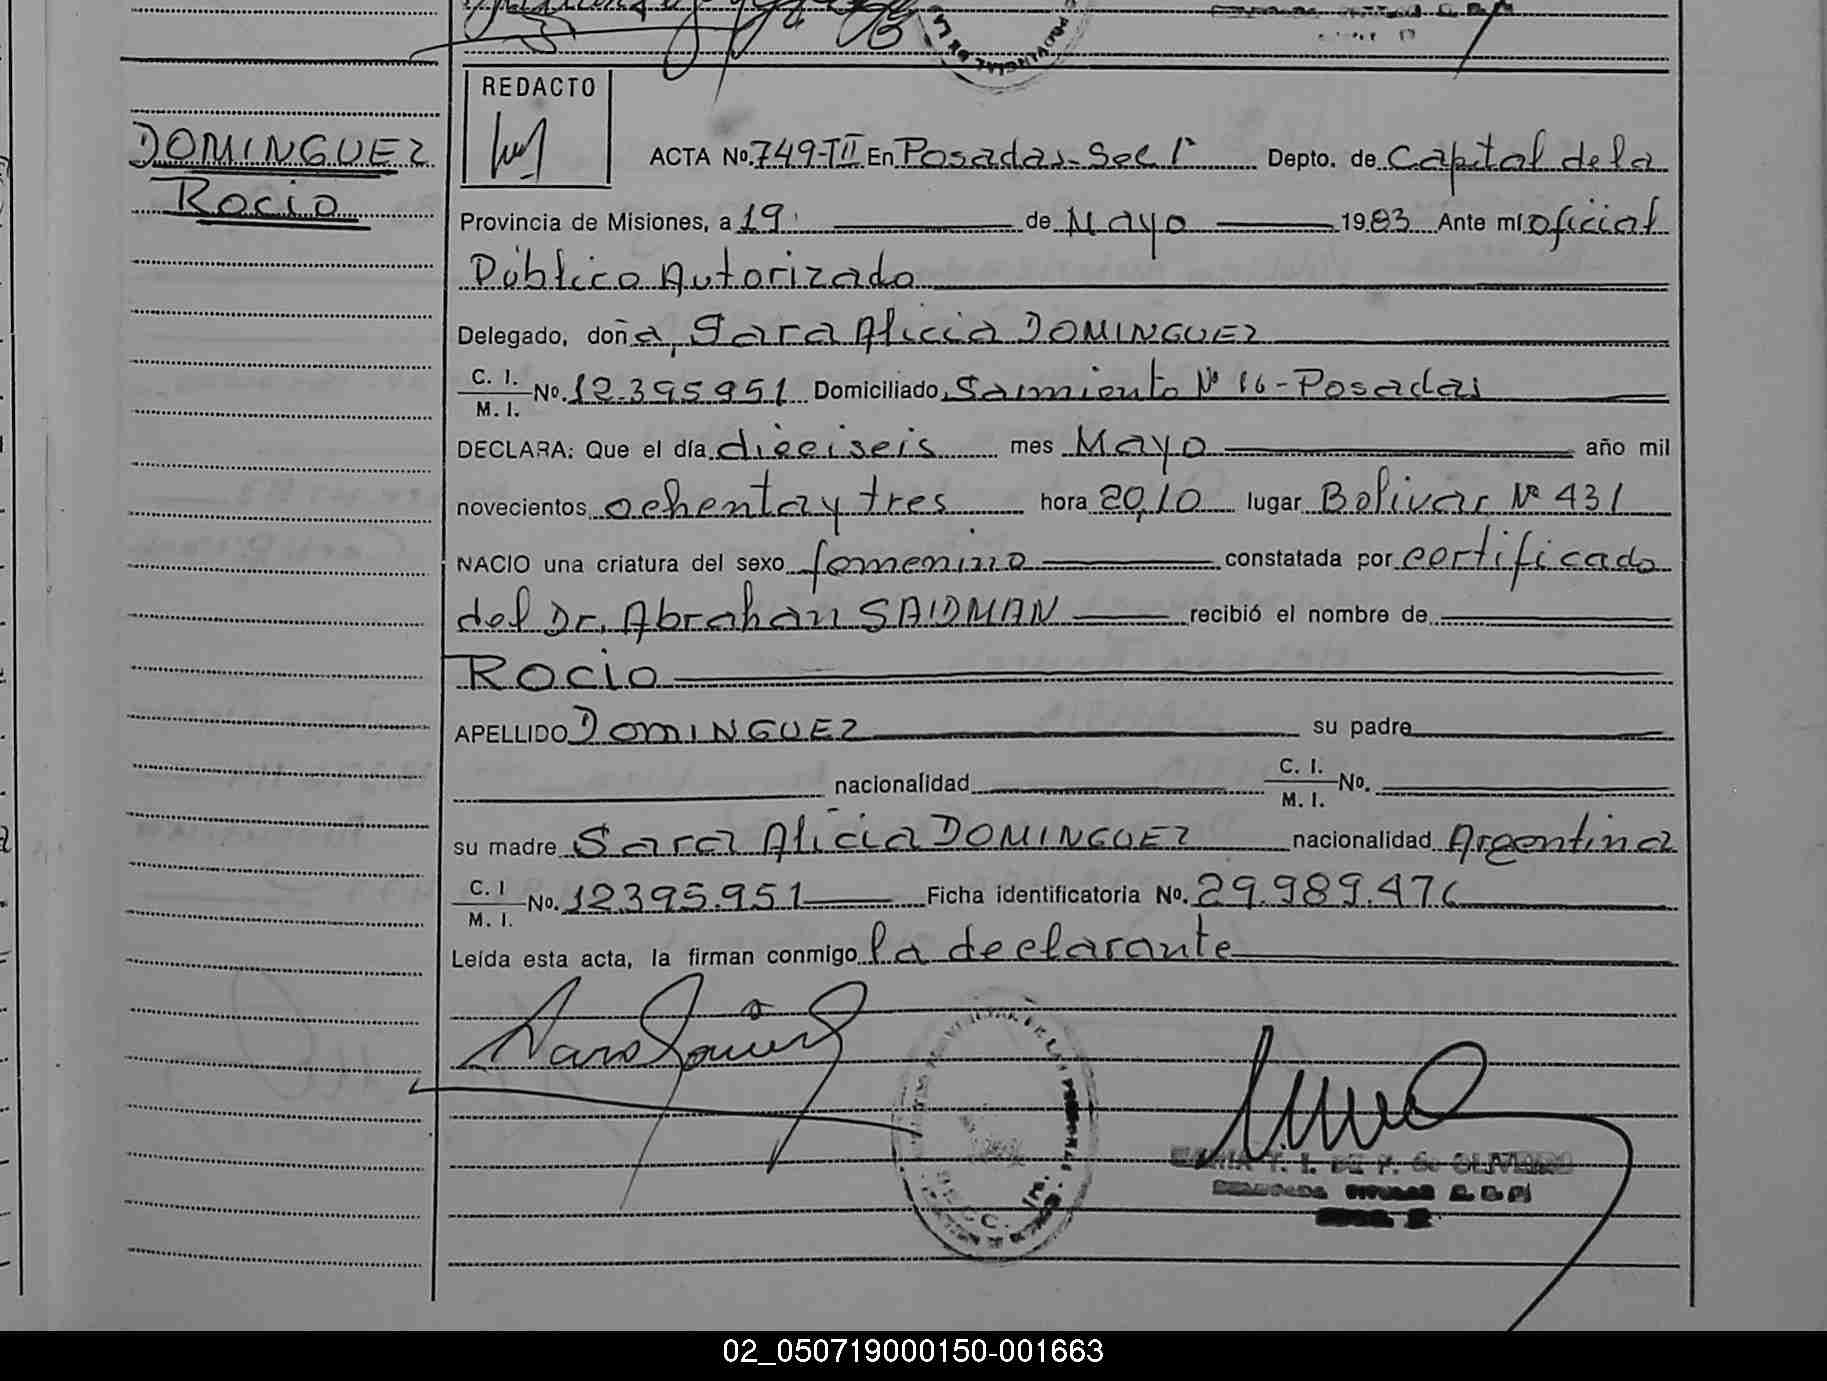 REDACTO
DOMINGUEZ
Rocio
ACTA No. 749-TII En Posadas-Sec 1ª Depto. de Capital de la
Provincia de Misiones, a 19 de Mayo 1983 Ante mí oficial
Público Autorizado
Delegado, doña, Sara Alicia DOMINGUEZ
C. I.
M. I. No. 12.395951 Domiciliado Sarmiento Nº 16-Posadas
DECLARA: Que el día dieciseis mes Mayo año mil
novecientos ochenta y tres hora 20,10 lugar Bolivar Nº 431
NACIO una criatura del sexo femenino constatada por certificado
del Dr. Abrahan SAIDMAN recibió el nombre de
Rocio
APELLIDO DOMINGUEZ su padre
nacionalidad C. I. M. I. No.
su madre Sara Alicia DOMINGUEZ nacionalidad Argentina
C. I M. I. No. 12395.951 Ficha identificatoria No. 29.989.476
Leída esta acta, la firman conmigo la declarante
02_050719000150-001663